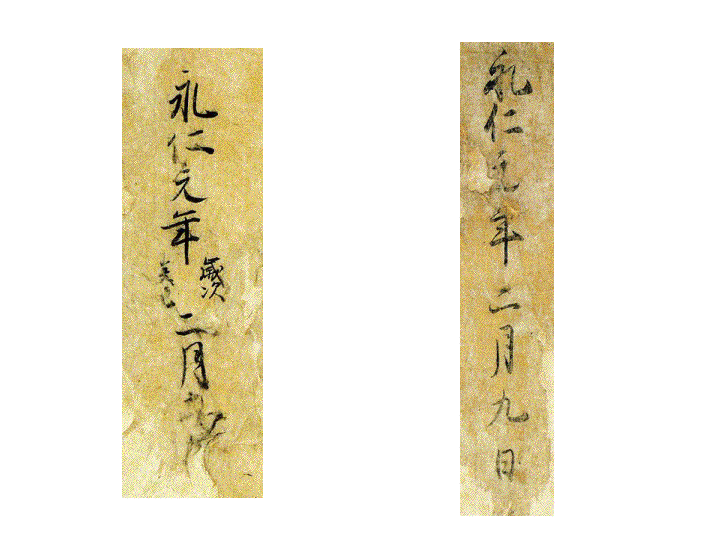 永仁元年二月九日
永仁元年
歳次
癸巳
二月